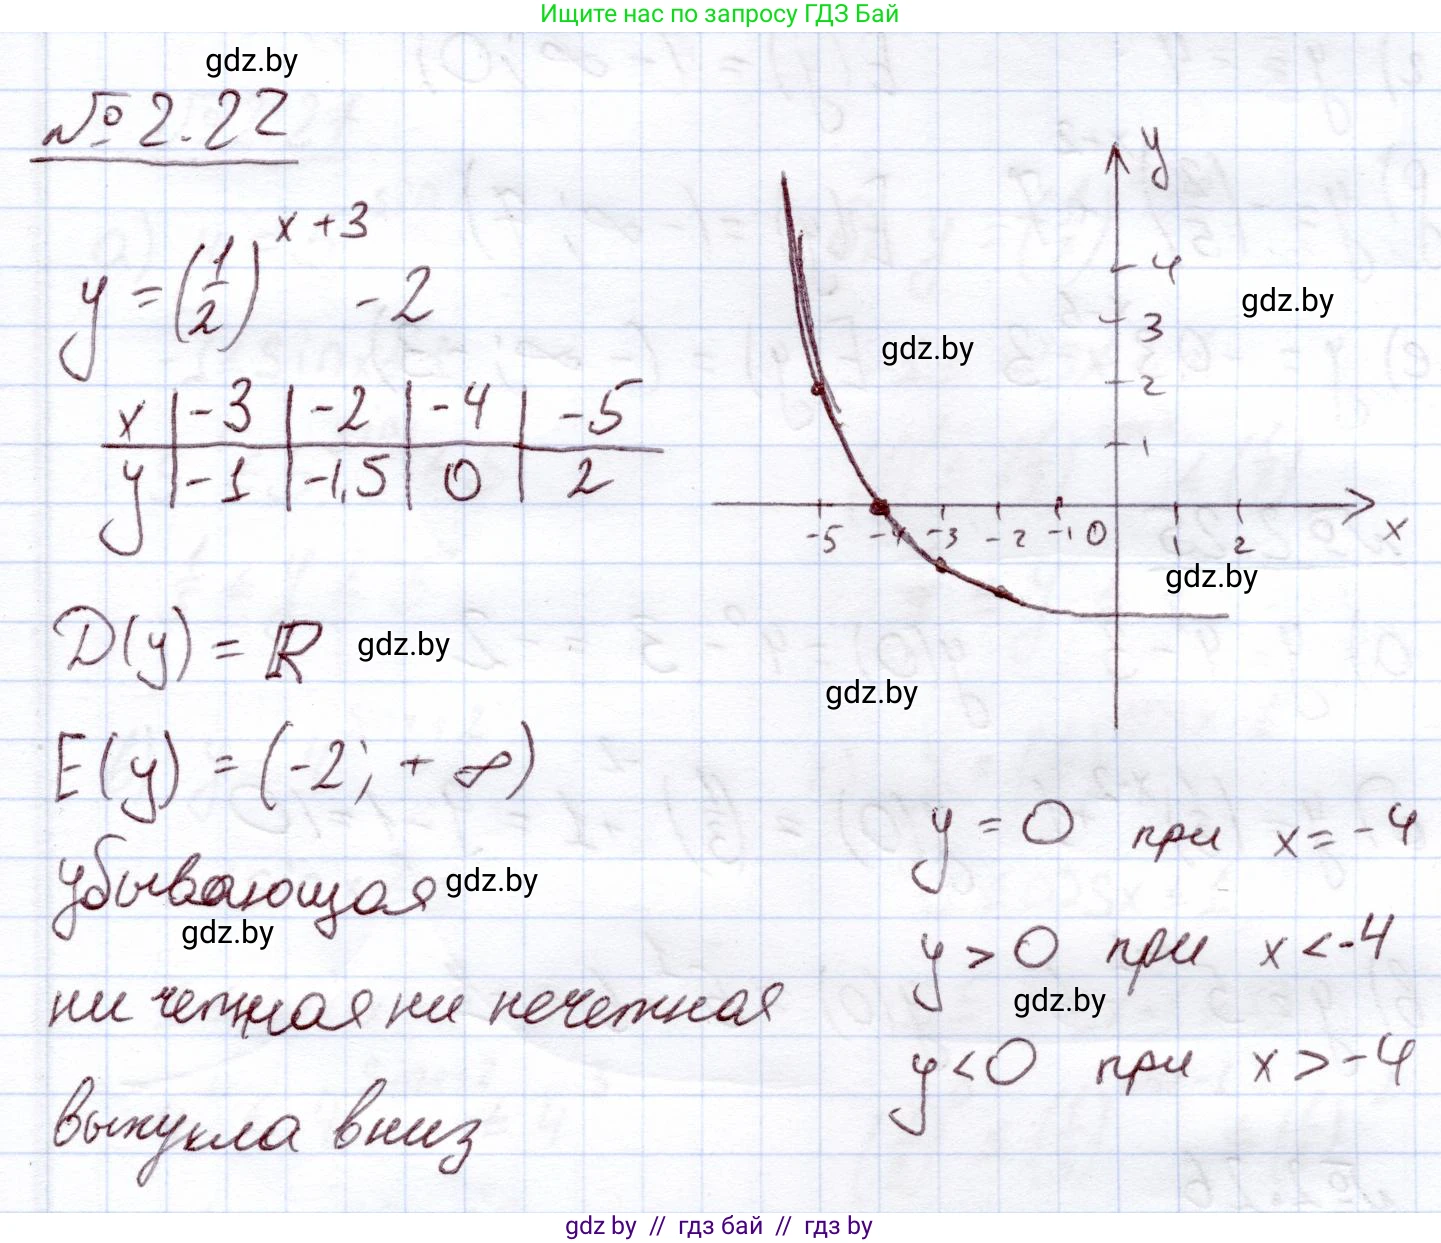 Ищите нас по запросу ГДЗ Бай
gdz.by
№ 2.22
y = (1/2)^(x+3) - 2
x | -3 | -2 | -4 | -5
y | -1 | -1,5 | 0 | 2
y
4
3
2
1
-5 -4 -3 -2 -1 0 1 2 x
gdz.by
gdz.by
gdz.by
D(y) = R
gdz.by
gdz.by
E(y) = (-2; +∞)
убывающая
gdz.by
gdz.by
ни четная ни нечетная
выпукла вниз
y = 0 при x = -4
y > 0 при x < -4
gdz.by
y < 0 при x > -4
gdz by // гдз бай // гдз by